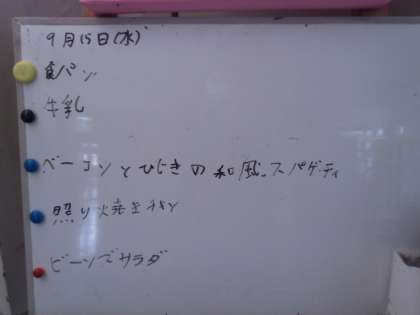 9月15日(水)
食パン
牛乳
ベーコンとひじきの和風スパゲティ
照り焼きチキン
ビーンズサラダ